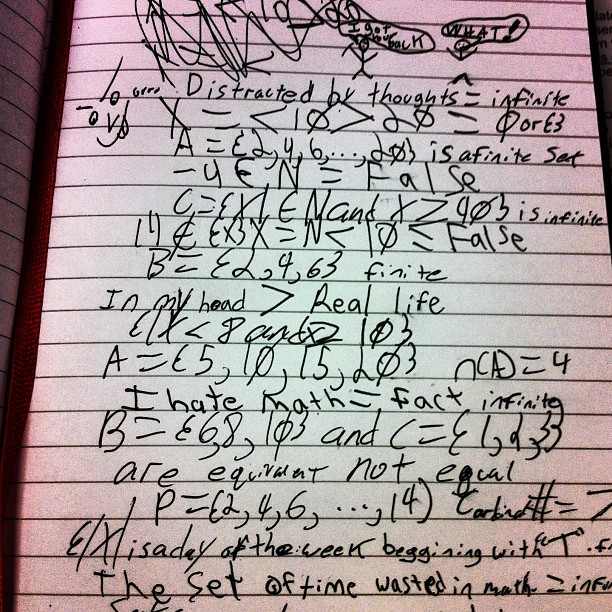 I got your back WHAT!
Distracted by thoughts = infinite
X = < 10 > 20 = Ø or {}
A = {2, 4, 6, ..., 20} is a finite set
-4 ∈ N = False
C = {X | ∈ N and X ≥ 40} is infinite
14 ∉ {X} X = N < 10 = False
B = {2, 4, 6} finite
In my head > Real life
{/X < 8 and > 10}
A = {5, 10, 15, 20} n(A) = 4
I hate math = fact infinite
B = {6, 8, 10} and C = {1, 2, 3}
are equivalent not equal
P = {2, 4, 6, ..., 14} Cardinal # = 7
{/X/ is a day of the week beggining with "T"
The set of time wasted in math =